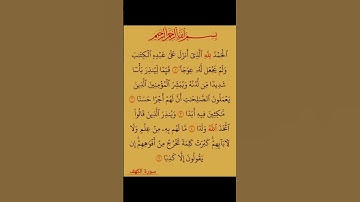 بسم الله الرحمن الرحيم
ٱلْحَمْدُ لِلَّهِ ٱلَّذِىٓ أَنزَلَ عَلَىٰ عَبْدِهِ ٱلْكِتَٰبَ
وَلَمْ يَجْعَل لَّهُۥ عِوَجَا ۜ ١ قَيِّمًا لِّيُنذِرَ بَأْسًا
شَدِيدًا مِّن لَّدُنْهُ وَيُبَشِّرَ ٱلْمُؤْمِنِينَ ٱلَّذِينَ
يَعْمَلُونَ ٱلصَّٰلِحَٰتِ أَنَّ لَهُمْ أَجْرًا حَسَنًا ٢
مَّٰكِثِينَ فِيهِ أَبَدًا ٣ وَيُنذِرَ ٱلَّذِينَ قَالُوا۟
ٱتَّخَذَ ٱللَّهُ وَلَدًا ٤ مَّا لَهُم بِهِۦ مِنْ عِلْمٍ وَلَا
لِءَابَآئِهِمْ كَبُرَتْ كَلِمَةً تَخْرُجُ مِنْ أَفْوَٰهِهِمْ إِن
يَقُولُونَ إِلَّا كَذِبًا ٥
سورة الكهف